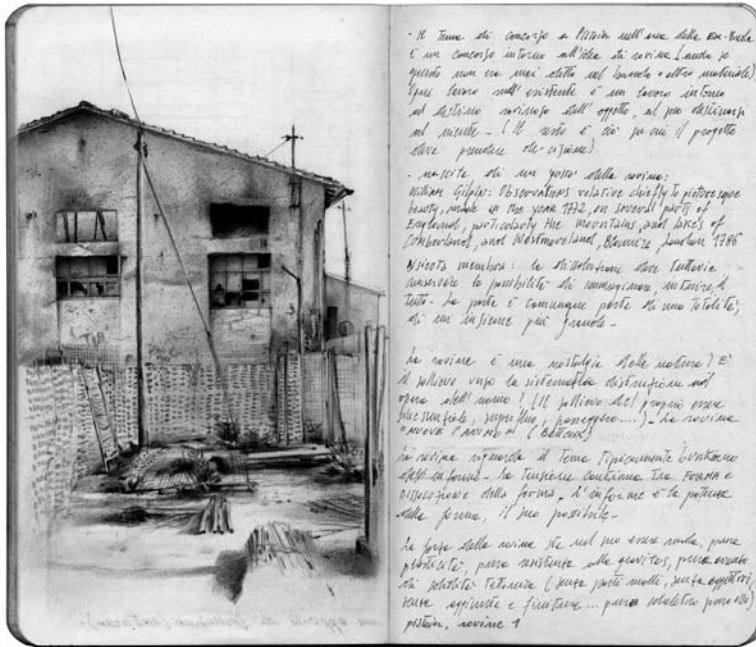 - Il tema di concorso a Pistoia nell'area della Ex-Breda
è un concorso intorno all'idea di rovina (anche se
questo non era mai detto nel bando o altro materiale)
Ogni lavoro sull'esistente è un lavoro intorno
al destino rovinoso dell'oggetto, al suo destinarsi
al niente - (Il resto è ciò su cui il progetto
deve prendere de-cisione).
- nascita di un gusto della rovina:
William Gilpin: Observations relative chiefly to picturesque
beauty, made in the year 1772, on several parts of
England, particularly the mountains, and lakes of
Cumberland, and Westmoreland, Blamire, London 1786
Disiecta membra: la dissoluzione deve tuttavia
conservare la possibilità di immaginare, intuire, il
tutto - La parte è comunque parte di una totalità,
di un insieme più grande -
La rovina è una nostalgia della natura? È
il sollievo verso la sistematica distruzione
opera dell'uomo? (Il sollievo del proprio essere
superfluo, passeggero....) - La rovina
"muove l'animo" (
La rovina riguarda il tema tipicamente
dell'informe - La tensione continua tra FORMA e
DISSOLUZIONE della forma. L'informe è la potenza
della forma, il suo possibile -
La forza della rovina sta nel suo essere nuda, pura
plasticità, pura resistenza alla gravitas, pura
di tettonica (senza parti molli, senza oggetti,
senza aggiunte e finiture... puro scheletro
pistoia, rovine 1